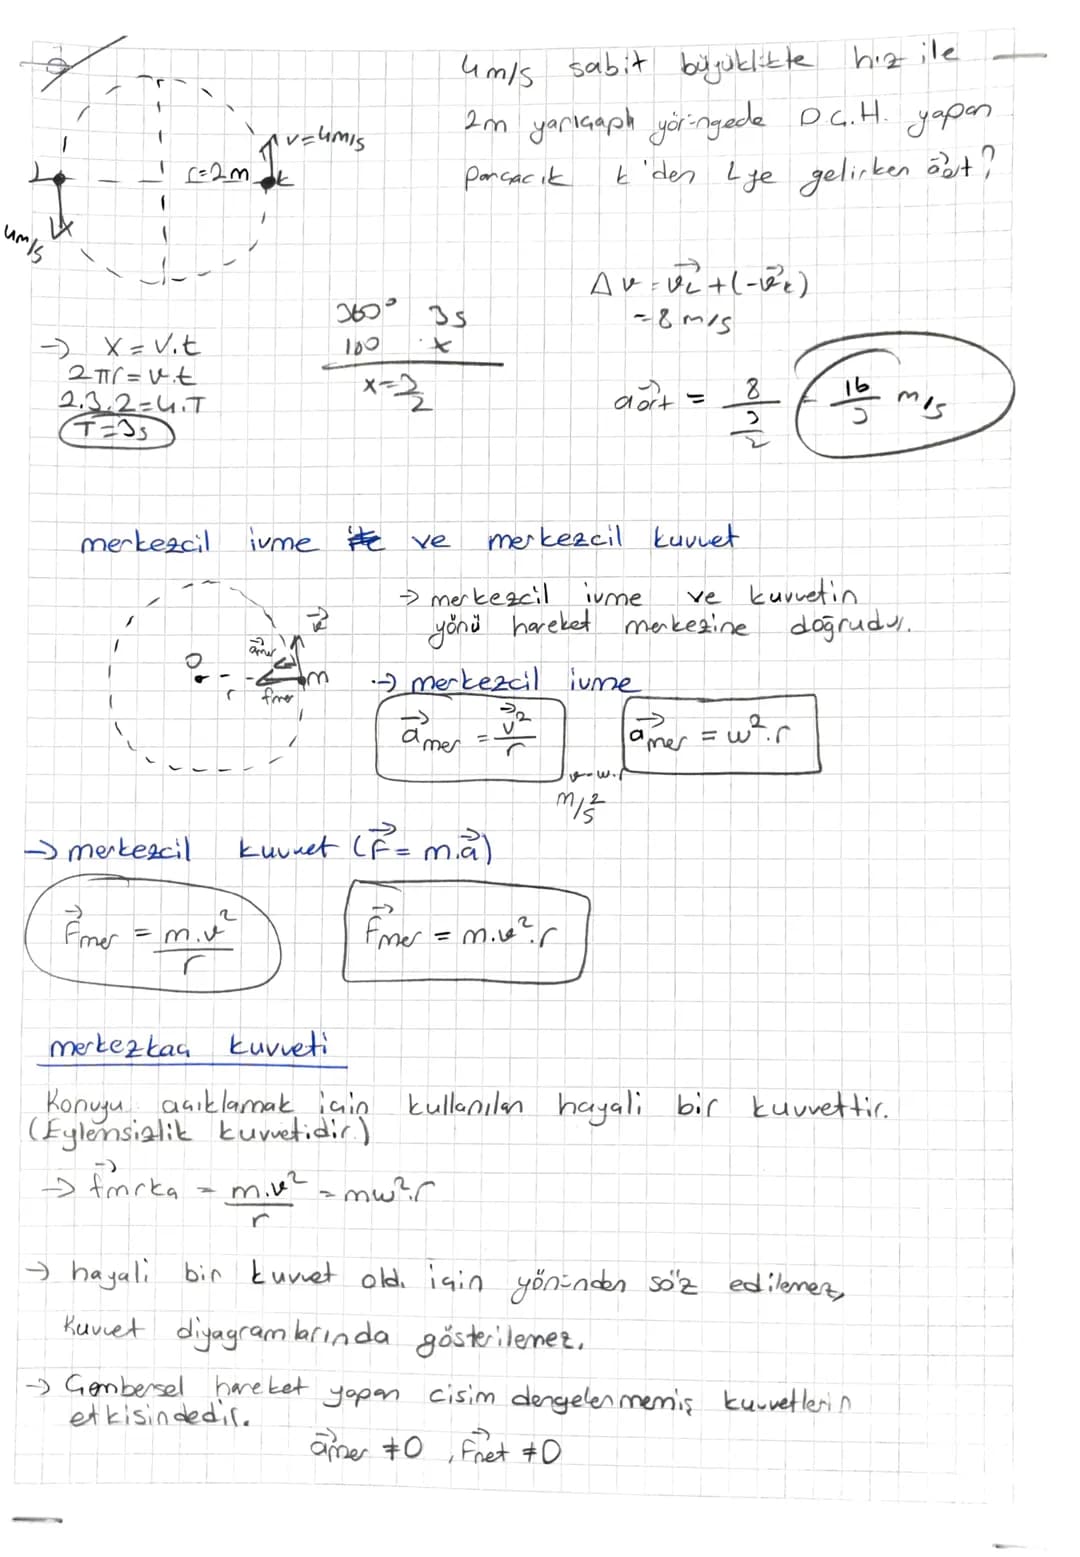 4m/s sabit büyüklükte hız ile
2m yarıçaplı yörüngede D.Ç.H. yapan
parçacık K'den L'ye gelirken a⃗ort?
v=4m/s
r=2m
K
L
4m/s
Δv = v⃗L + (-v⃗K)
= 8 m/s
360° 3s
180 x
x = 3/2
→ x = v.t
2πr = v.t
2.3.2 = 4.T
T = 3s
a⃗ort = 8 / (3/2) = 16/3 m/s
merkezcil ivme ve merkezcil kuvvet
→ merkezcil ivme ve kuvvetin
yönü hareket merkezine doğrudur.
v⃗
a⃗mer
O
r
fmer
m
→ merkezcil ivme
a⃗mer = v⃗²/r
a⃗mer = w².r
v=w.r
m/s²
→ merkezcil kuvvet (F⃗ = m.a⃗)
F⃗mer = m.v²/r
F⃗mer = m.v².r
merkezkaç kuvveti
Konuyu açıklamak için kullanılan hayali bir kuvvettir.
(Eylemsizlik kuvvetidir.)
→ f⃗mrkç = m.v²/r = mw².r
→ hayali bir kuvvet old. için yönünden söz edilemez,
kuvvet diyagramlarında gösterilemez.
→ Çembersel hareket yapan cisim dengelenmemiş kuvvetlerin
etkisindedir.
a⃗mer ≠ 0 , F⃗net ≠ 0